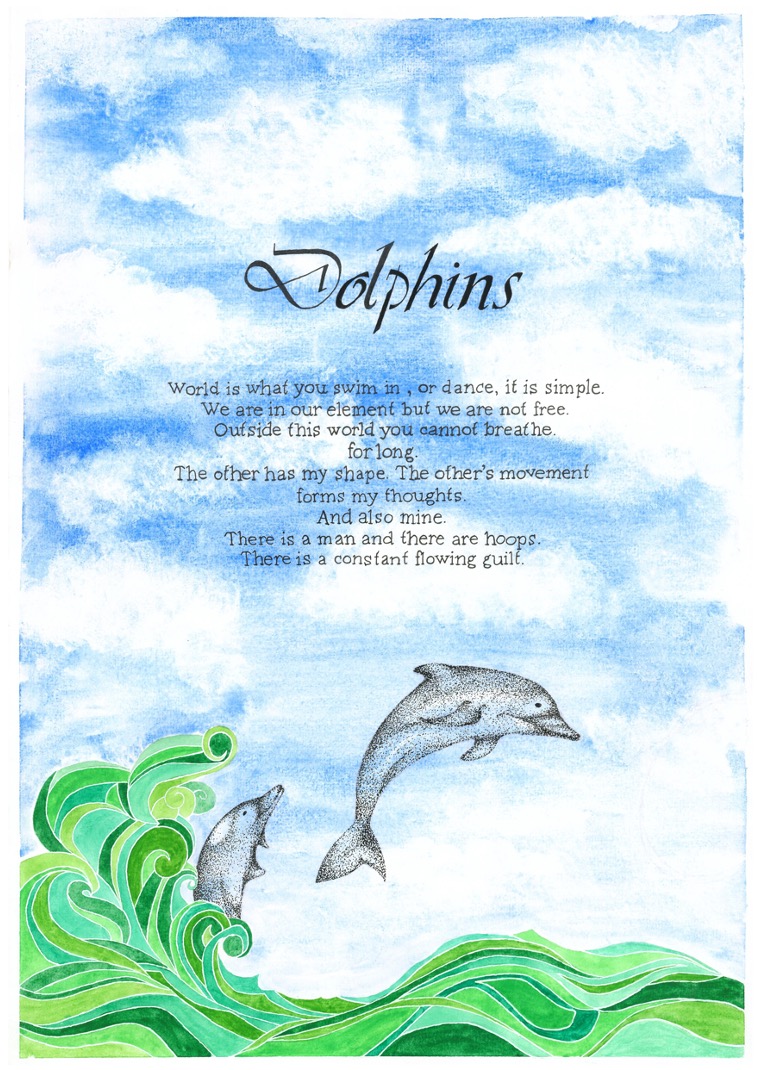 Dolphins
World is what you swim in , or dance, it is simple.
We are in our element but we are not free.
Outside this world you cannot breathe.
for long.
The other has my shape. The other's movement
forms my thoughts.
And also mine.
There is a man and there are hoops.
There is a constant flowing guilt.